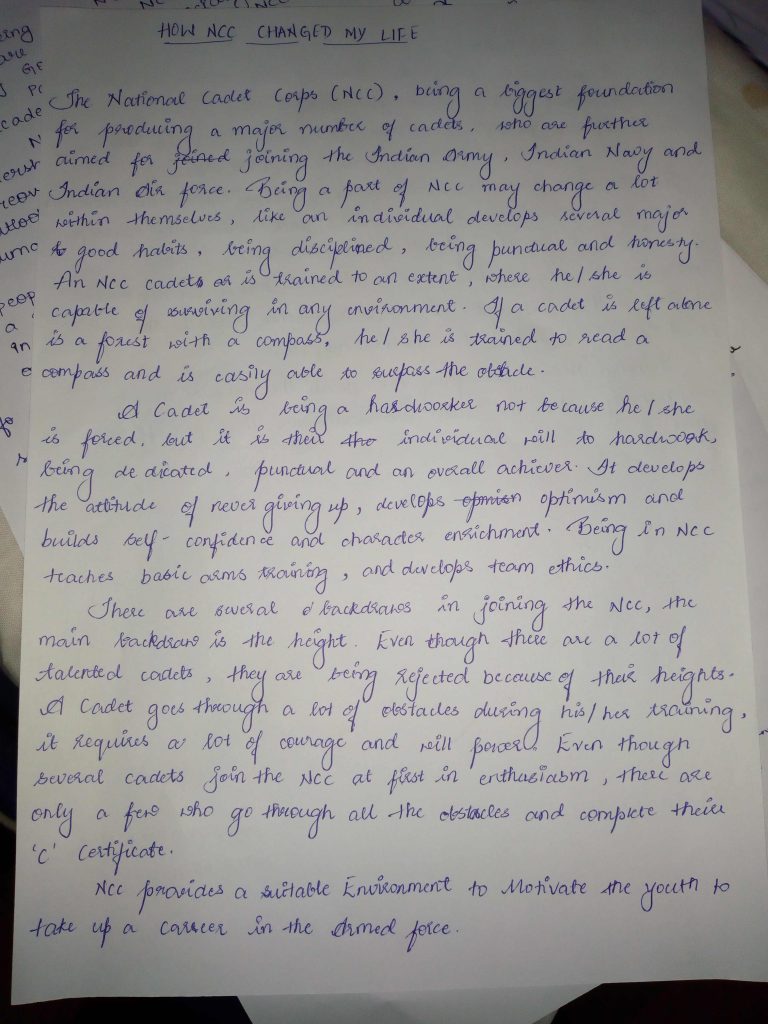 HOW NCC CHANGED MY LIFE
The National Cadet Corps (NCC), being a biggest foundation
for producing a major number of cadets, who are further
aimed for joined joining the Indian Army, Indian Navy and
Indian Air force. Being a part of NCC may change a lot
within themselves, like an individual develops several major
good habits, being disciplined, being punctual and honesty.
An NCC cadets or is trained to an extent, where he/she is
capable of surviving in any environment. If a cadet is left alone
is a forest with a compass, he/she is trained to read a
compass and is easily able to surpass the obstacle.
A Cadet is being a hardworker not because he/she
is forced, but it is their the individual will to hardwook,
being dedicated, punctual and an overall achiever. It develops
the attitude of never giving up, develops opmisn optimism and
builds self-confidence and character enrichment. Being in NCC
teaches basic arms training, and develops team ethics.
There are several backdraws in joining the NCC, the
main backdraw is the height. Even though there are a lot of
talented cadets, they are being rejected because of their heights.
A Cadet goes through a lot of obstacles during his/her training,
it requires a lot of courage and will power. Even though
several cadets join the NCC at first in enthusiasm, there are
only a few who go through all the obstacles and complete their
'C' Certificate.
NCC provides a suitable Environment to Motivate the youth to
take up a carreer in the Armed force.